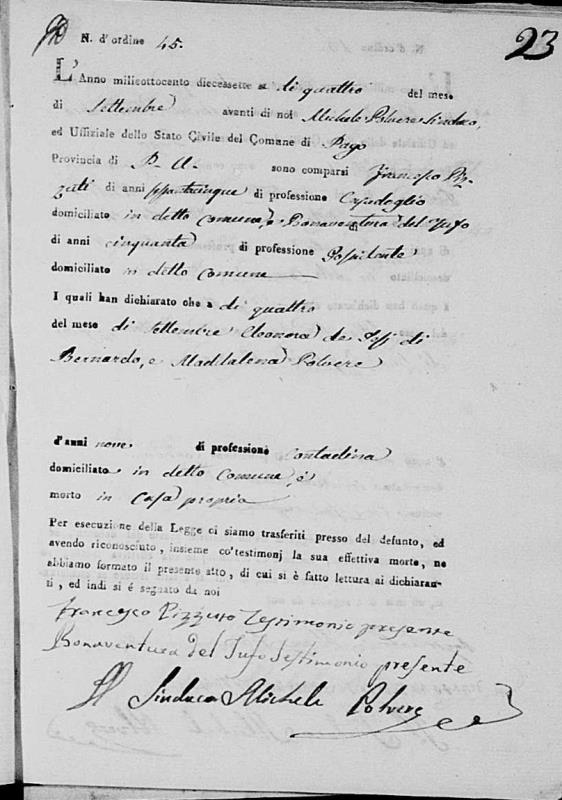 23
N. d'ordine 45.
L'Anno milleottocento diecessette a di quattro del mese
di Settembre avanti di noi Michele Polvere Sindaco,
ed Uffiziale dello Stato Civile del Comune di Pago
Provincia di P. U. sono comparsi Francesco Piz-
zuti di anni di professione
domiciliato in detto comune, e Bonaventura del Tufo
di anni cinquanta di professione
domiciliato in detto comune
I quali han dichiarato che a di quattro
del mese di Settembre Eleonora de di
Bernardo, e Maddalena Polvere
d'anni nove di professione contadina
domiciliato in detto Comune, è
morto in casa propria
Per esecuzione della Legge ci siamo trasferiti presso del defunto, ed
avendo riconosciuto, insieme co'testimonj la sua effettiva morte, ne
abbiamo formato il presente atto, di cui si è fatto lettura ai dichiaran-
ti, ed indi si é segnato da noi
Francesco Pizzuto Testimonio presente
Bonaventura del Tufo Testimonio presente
Il Sindaco Michele Polvere